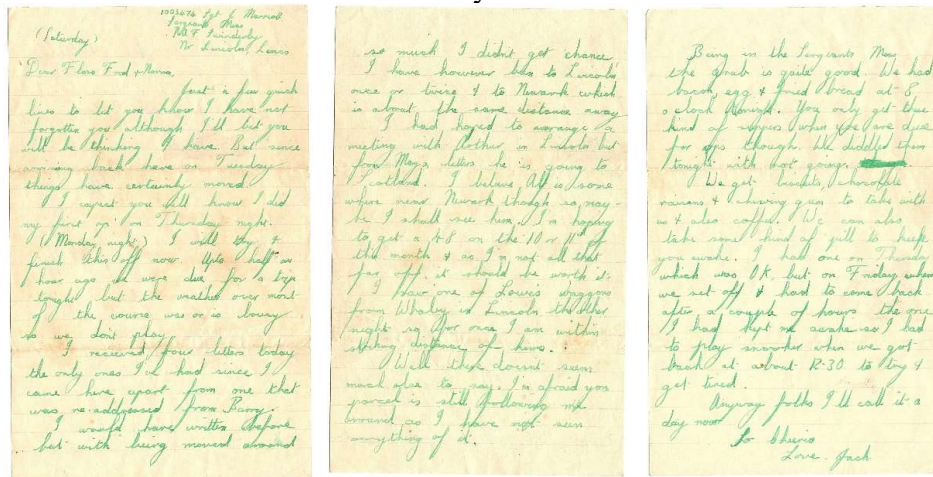 1003474 Sgt C Marriott
Sergeants Mess
RAF Swinderby
Nr Lincoln, Lincs
(Saturday)
Dear Flora Fred & Mama,
Just a few quick
lines to let you know I have not
forgotten you although I'll bet you
will be thinking I have. But since
arriving back here on Tuesday
things have certainly moved.
I expect you will know I did
my first op on Thursday night.
(Monday night) I will try &
finish this off now. Upto half an
hour ago we were due for a trip
tonight but the weather over most
of the course was or is lousy
so we don't play.
I received four letters today
the only ones I've had since I
came here apart from one that
was re-addressed from Barry.
I would have written before
but with being moved around
so much I didn't get chance
I have however been to Lincoln
once or twice & to Newark which
is about the same distance away
I had hoped to arrange a
meeting with Arthur in Lincoln but
from letters he is going to
Scotland. I believe Alf is some
where near Newark though so may-
be I shall see him. I'm hoping
to get a 48 on the 10 or 11th of
the month & as I'm not all that
far off it should be worth it.
I saw one of Lewis's waggons
from Whaley in Lincoln the other
night so for once I am within
striking distance of home.
Well there doesn't seem
much else to say. I'm afraid you
parcel is still following me
around so I have not seen
anything of it.
Being in the Sergeants Mess
the grub is quite good. We had
bacon, egg & fried bread at 8
o'clock tonight. You only get this
kind of suppers when you are due
for ops though. We diddled them
tonight with not going.
We get biscuits, chocolate
raisins & chewing gum to take with
us & also coffee. We can also
take some kind of pill to keep
you awake. I had one on Thursday
which was O.K. but on Friday when
we set off & had to come back
after a couple of hours the one
I had kept me awake so I had
to play snooker when we got
back at about 12.30 to try &
get tired.
Anyway folks I'll call it a
day now
So Cheerio
Love. Jack